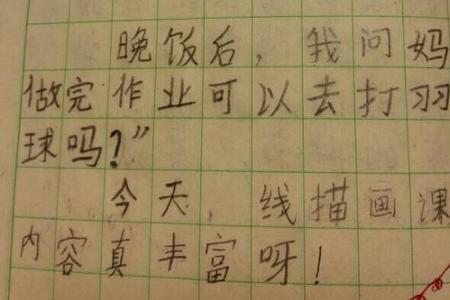 晚饭后，我问妈
做完作业可以去打羽
球吗？”
今天，线描画课
内容真丰富呀！